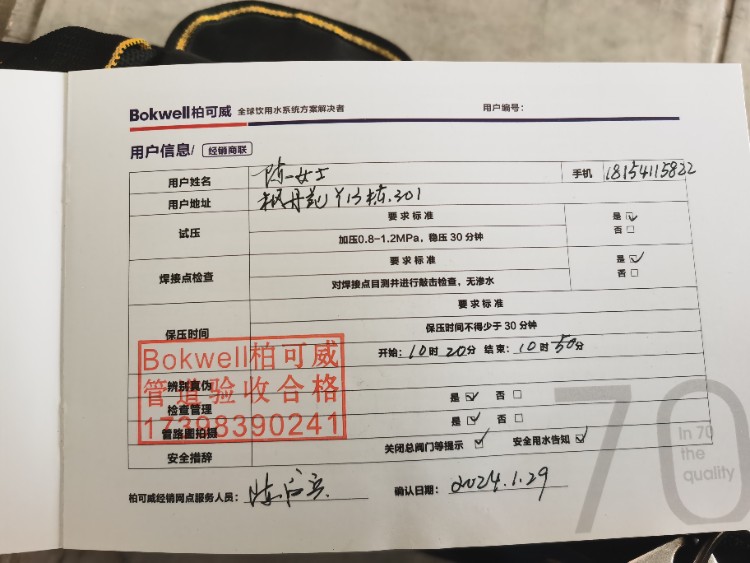 Bokwell柏可威 全球饮用水系统方案解决者 用户编号：
用户信息/ 经销商联
用户姓名 陈女士 手机 18154115822
用户地址 301
试压 要求标准 是☑
加压0.8-1.2MPa，稳压 30 分钟 否☐
焊接点检查 要求标准 是☑
对焊接点目测并进行敲击检查，无渗水 否☐
保压时间 要求标准
保压时间不得少于 30 分钟
开始：10时 20分 结束：10时 50分
辨别真伪
检查管理 是☑ 否☐
管路图拍摄 是☑ 否☐
安全措辞 关闭总阀门等提示☑ 安全用水告知☑
Bokwell柏可威
管道验收合格
17398390241
柏可威经销网点服务人员： 确认日期：2024.1.29
70
In 70
the
quality